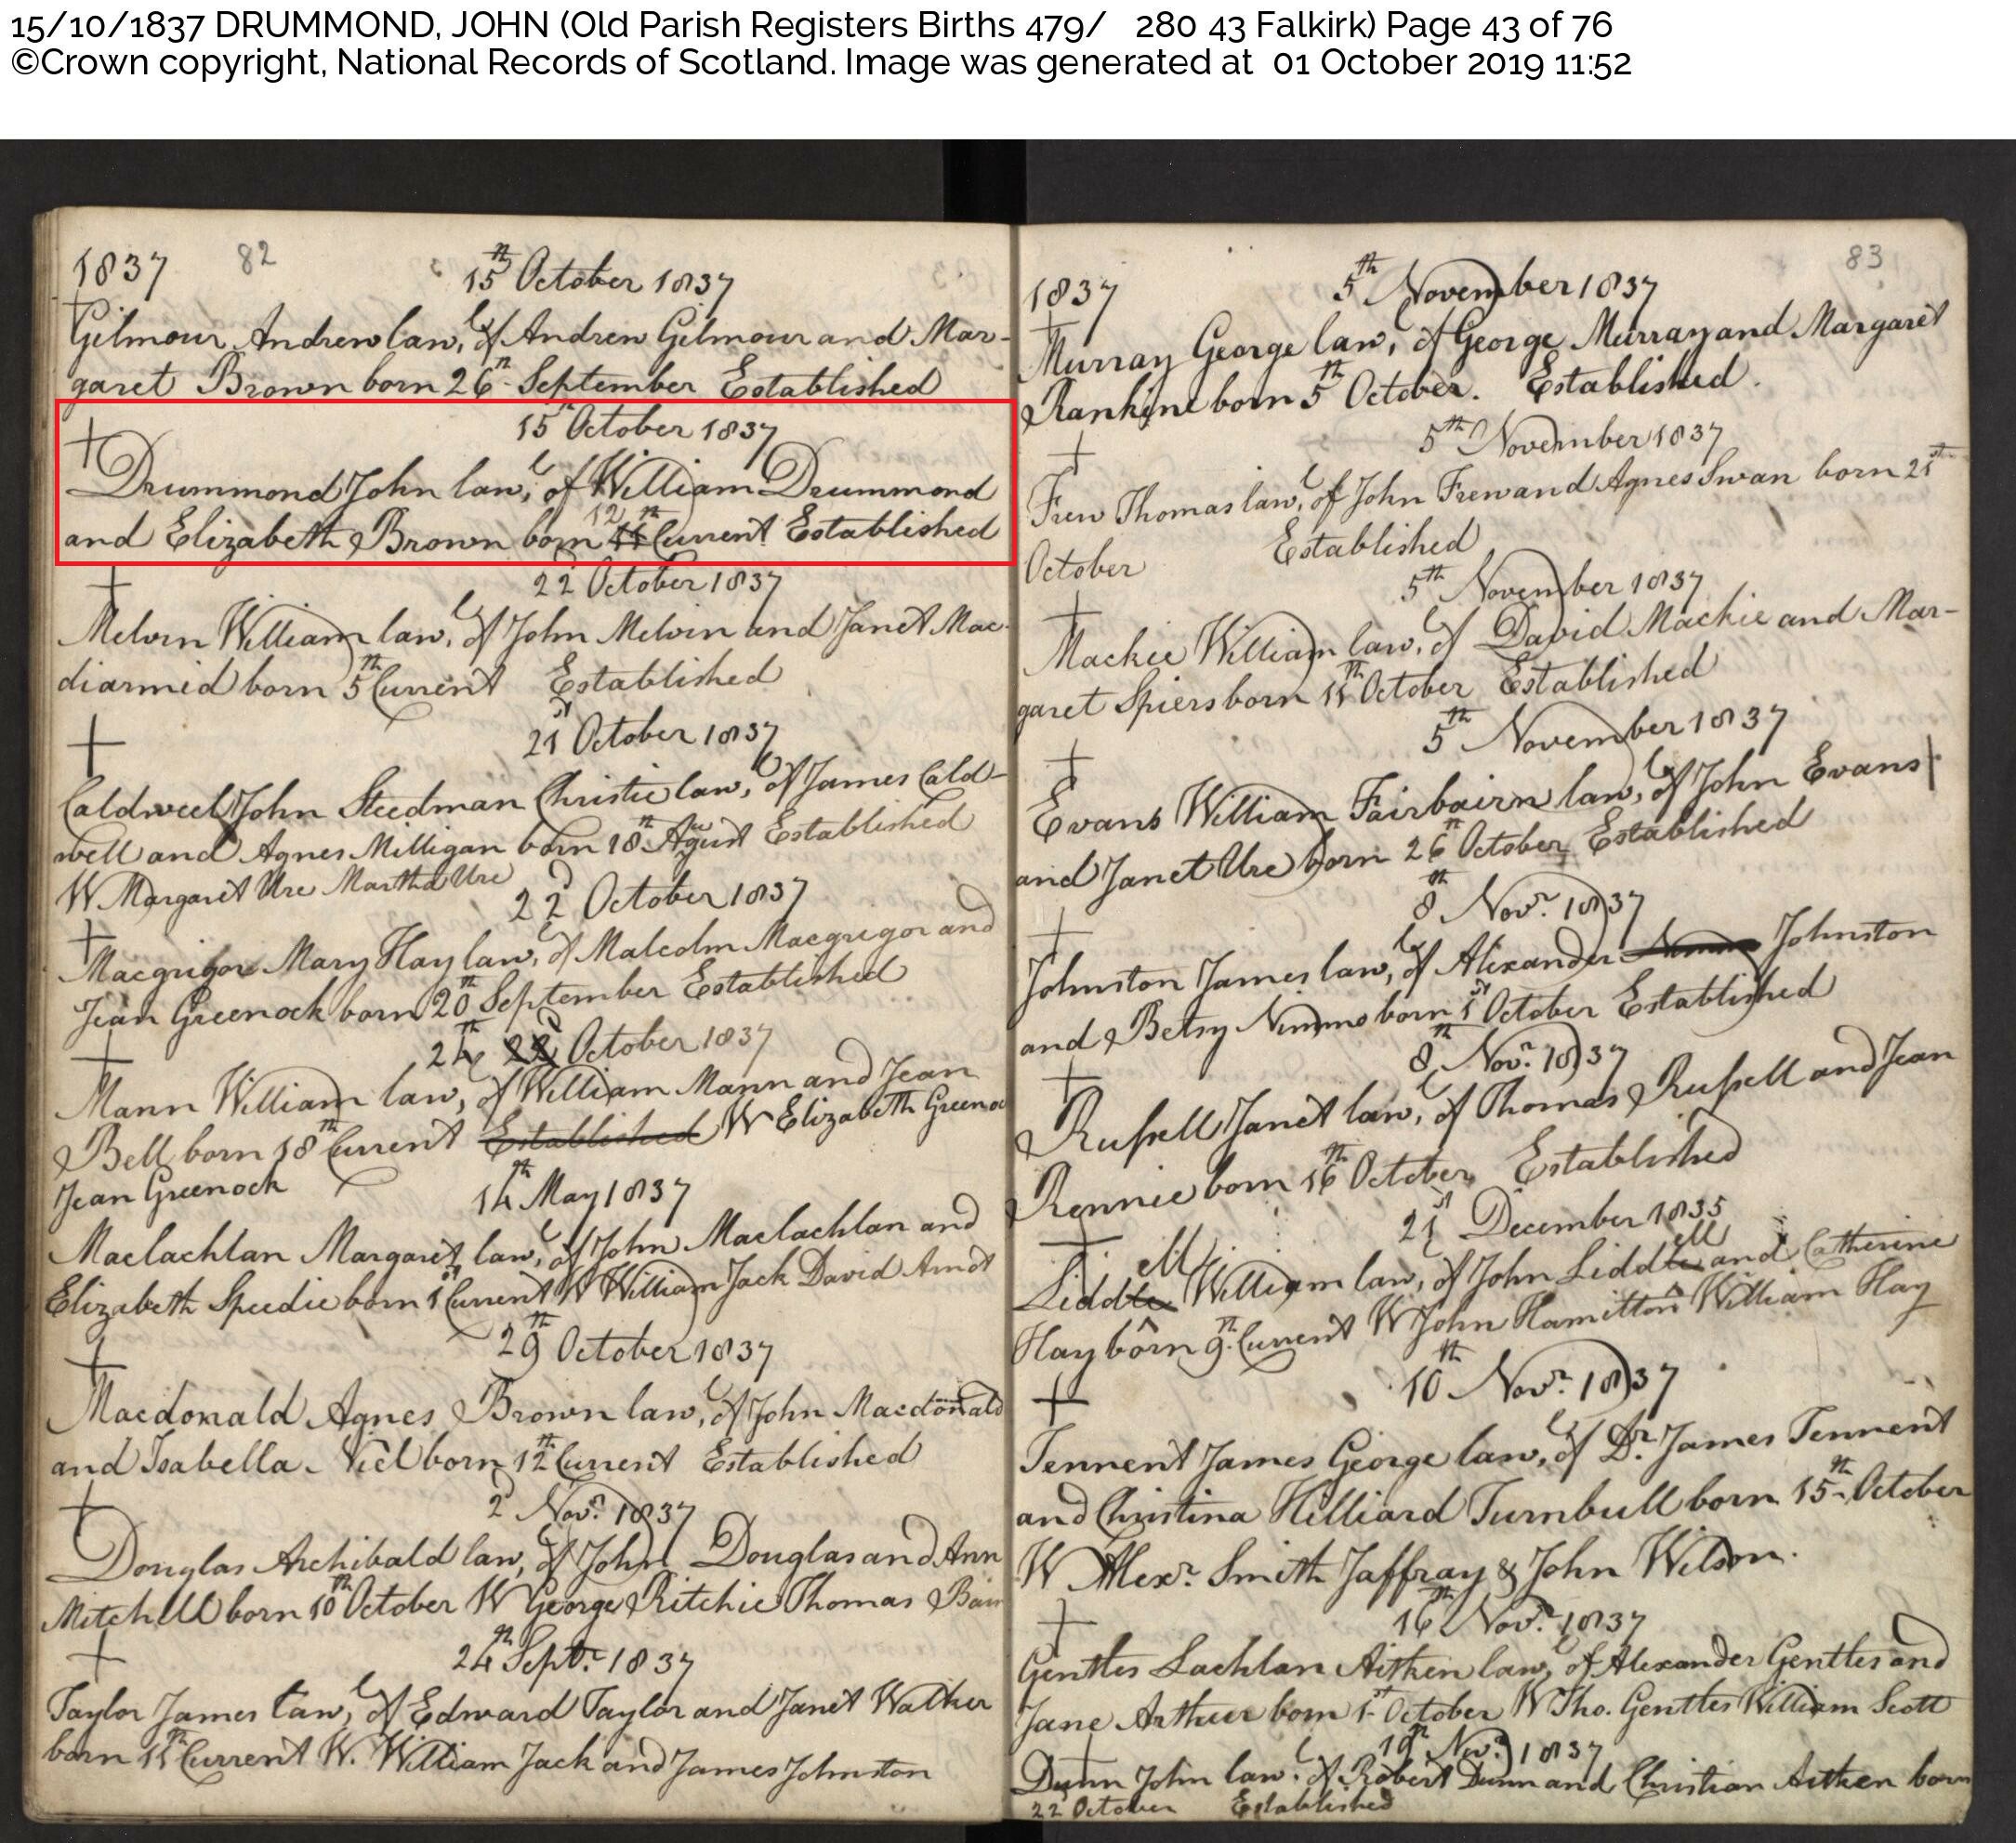 15/10/1837 DRUMMOND, JOHN (Old Parish Registers Births 479/ 280 43 Falkirk) Page 43 of 76
©Crown copyright, National Records of Scotland. Image was generated at 01 October 2019 11:52
1837 82
15th October 1837
Gilmour Andrew law,l of Andrew Gilmour and Mar-
garet Brown born 26th September Established
15th October 1837
Drummond John law,l of William Drummond
and Elizabeth Brown born 12th 11 Current Established
22d October 1837
Melvin William law,l of John Melvin and Janet Mac-
diarmid born 5th Current Established
21st October 1837
Caldwell John Steedman Christie law,l of James Cald-
well and Agnes Milligan born 18th August Established
W Margaret Ure Martha Ure
22d October 1837
Macgrigor Mary Hay law,l of Malcolm Macgregor and
Jean Greenock born 20th September Established
24th 22d October 1837
Mann William law,l of William Mann and Jean
Bell born 18th Current Established W Elizabeth Greenoc
Jean Greenock
14th May 1837
Maclachlan Margaret law,l of John Maclachlan and
Elizabeth Speedie born 1st Current W William Jack David Arnot
29th October 1837
Macdonald Agnes Brown law,l of John Macdonald
and Isabella Niel born 12th Current Established
2d Novr. 1837
Douglas Archibald law,l of John Douglas and Ann
Mitchell born 10th October W George Ritchie Thomas Bain
24th Septr. 1837
Taylor James law,l of Edward Taylor and Janet Walker
born 11th Current W. William Jack and James Johnston
83
1837
5th November 1837
Murray George law,l of George Murray and Margaret
Rankine born 5th October. Established.
5th November 1837
Frew Thomas law,l of John Frew and Agnes Swan born 21st
October Established
5th November 1837
Mackie William law,l of David Mackie and Mar-
garet Spiers born 11th October Established
5th November 1837
Evans William Fairbairn law,l of John Evans
and Janet Ure born 26th October Established
8th Novr. 1837
Johnston James law,l of Alexander Nimmo Johnston
and Betsy Nimmo born 1st October Established
8th Novr. 1837
Russell Janet law,l of Thomas Russell and Jean
Rennie born 16th October Established
21st December 1835
Liddle ell William law,l of John Liddle ell and Catherine
Hay born 9th Current W John Hamilton William Hay
10th Novr. 1837
Tennent James George law,l of Dr. James Tennent
and Christina Hilliard Turnbull born 15th October
W Alexr. Smith Jaffray & John Wilson.
16th Novr. 1837
Gentles Lachlan Aitken law,l of Alexander Gentles and
Jane Arthur born 1st October W Tho. Gentles William Scott
19th Novr. 1837
Dunn John law,l of Robert Dunn and Christian Aitken born
22 October Established